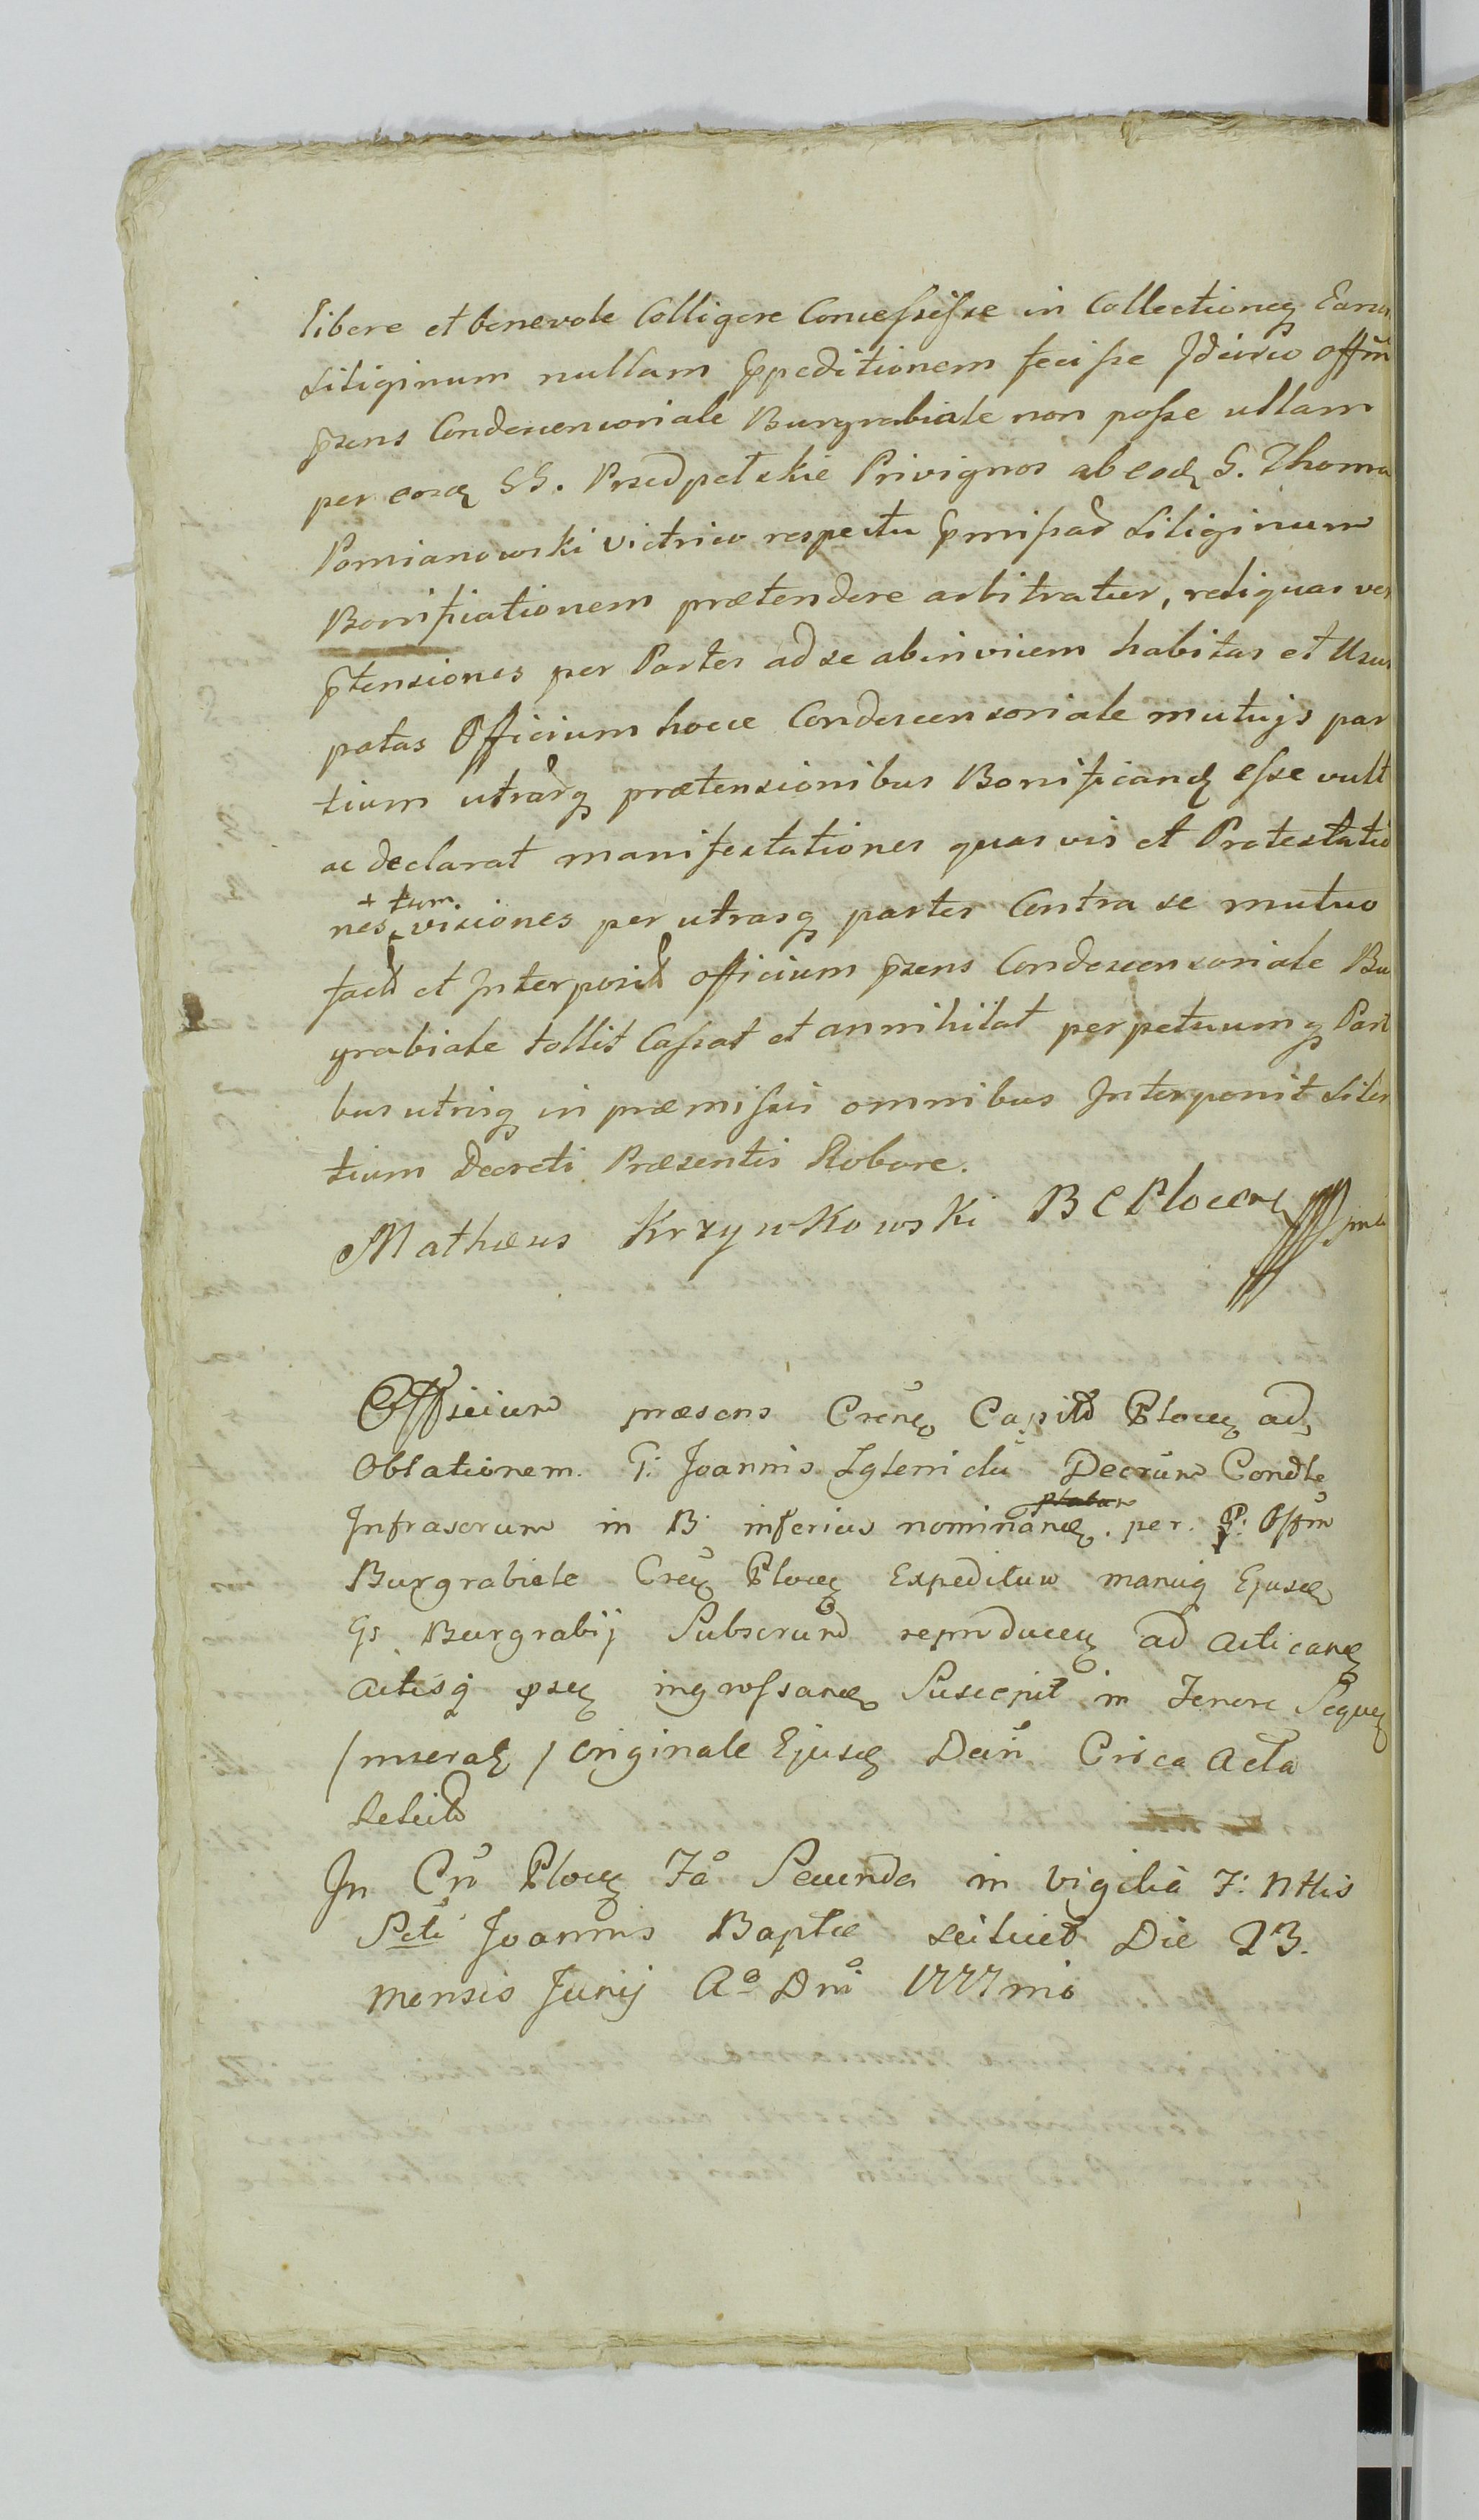 libere et benevole Colligere Concessisse in Collectioneq Earu
Siliginum nullam Expeditionem fecisse Idcirco Offm
pñs Condescensoriale Burgrabiale non posse ullam
per eosd GG. Przedpelskie Privignos ab eod G. Thoma
Pomianowski victrico respectu pmissar Siliginum
Bonificationem prætendere arbitratur, reliquas ver
ptensiones per Partes ad se abinvicem habitas et Usur
patas Officium hocce Condescensoriale mutuis par
tium utrarq prætensionibus Bonificand esse vult
ac declarat manifestationes quasvis et Protestatio
nes + tum visiones per utrasq partes Contra se mutuo
fact et Interposit officium pñs Condescensoriale Bu
grabiale tollit Cassat et annihilat perpetuumq Part
bus utrisq in præmissis omnibus Interponit Silen
tium Decreti Præsentis Robore.
Mathæus Krzynkowski B C Plocen
Officium præsens Crense Capitle Plocen ad
Oblationem G: Joannis Decrum Condle
Infrascrum in B: inferius nominand. per. P: Offm
Burgrabiale Cren Plocen Expeditum manuq Ejusd
Gs Burgrabij Subscrum reproducen ad acticand
actisq psen ingrossand Suscepit in Tenore Sequen
/ inserat / Originale Ejusd Circa Acta

In Co Plocen Fa Secunda in vigilia F: Nttis
Scti Joannis Baptæ scilicet Die 23.
mensis Junij Ao Dni 1777mo